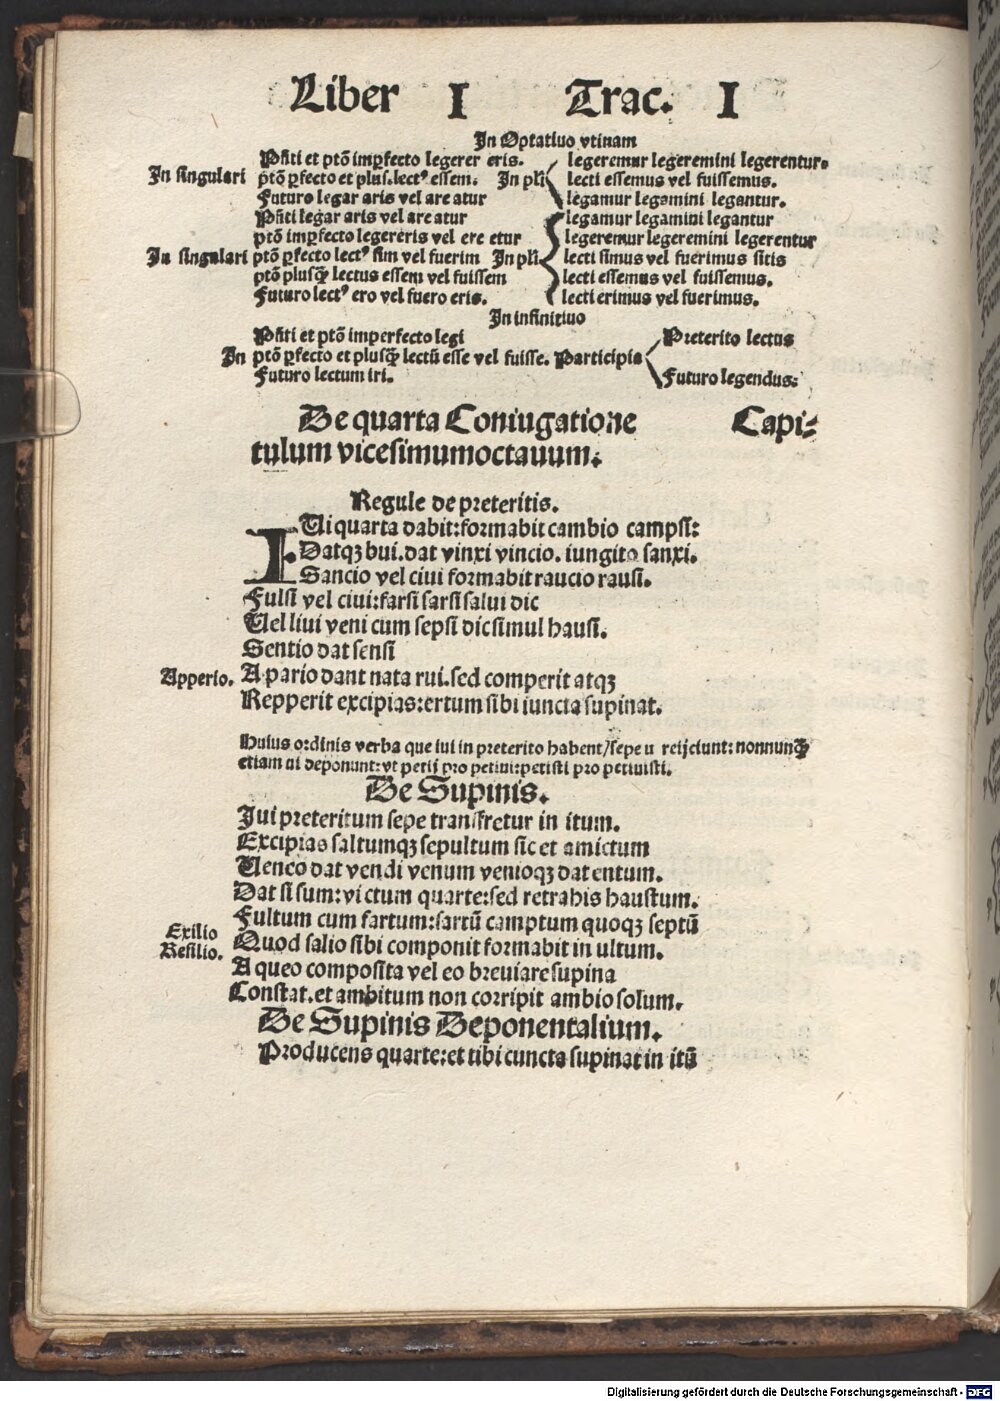 Liber I Trac. I
In Optatiuo vtinam
Pñti et ptõ imꝑfecto legerer eris. legeremur legeremini legerentur.
In singulari ptõ ꝑfecto et plus.lectꝰ essem. In pli lecti essemus vel fuissemus.
Futuro legar aris vel are atur legamur legamini legantur.
Pñti legar aris vel are atur legamur legamini legantur
ptõ imꝑfecto legereris vel ere etur legeremur legeremini legerentur
In singulari ptõ ꝑfecto lectꝰ sim vel fuerim In pli lecti simus vel fuerimus sitis
ptõ plusq̃ lectus essem vel fuissem lecti essemus vel fuissemus.
Futuro lectꝰ ero vel fuero eris. lecti erimus vel fuerimus.
In infinitiuo
Pñti et ptõ imperfecto legi Preterito lectus
In ptõ ꝑfecto et plusq̃ lectũ esse vel fuisse. Participia
Futuro lectum iri. Futuro legendus:
De quarta Coniugatione Capi-
tulum vicesimumoctauum.
Regule de preteritis.
IUi quarta dabit:formabit cambio campsi:
Datqꝫ bui.dat vinxi vincio. iungito sanxi.
Sancio vel ciui formabit raucio rausi.
Fulsi vel ciui:farsi sarsi salui dic
Uel liui veni cum sepsi dic simul hausi.
Sentio dat sensi
Apperio. A pario dant nata rui.sed comperit atqꝫ
Repperit excipias:ertum sibi iuncta supinat.
Huius ordinis verba que iui in preterito habent/sepe u reijciunt: nonnunq̃
etiam ui deponunt:vt perij pro petiui:petisti pro petiuisti.
De Supinis.
Iui preteritum sepe transfretur in itum.
Excipias saltumqꝫ sepultum sic et amictum
Ueneo dat vendi venum venioqꝫ dat entum.
Dat si sum:vi ctum quarte:sed retrahis haustum.
Fultum cum fartum:sartũ camptum quoqꝫ septũ
Exilio
Resilio. Quod salio sibi componit formabit in ultum.
A queo composita vel eo breuiare supina
Constat.et ambitum non corripit ambio solum.
De Supinis Deponentalium.
Producens quarte:et tibi cuncta supinat in itũ
Digitalisierung gefördert durch die Deutsche Forschungsgemeinschaft - DFG